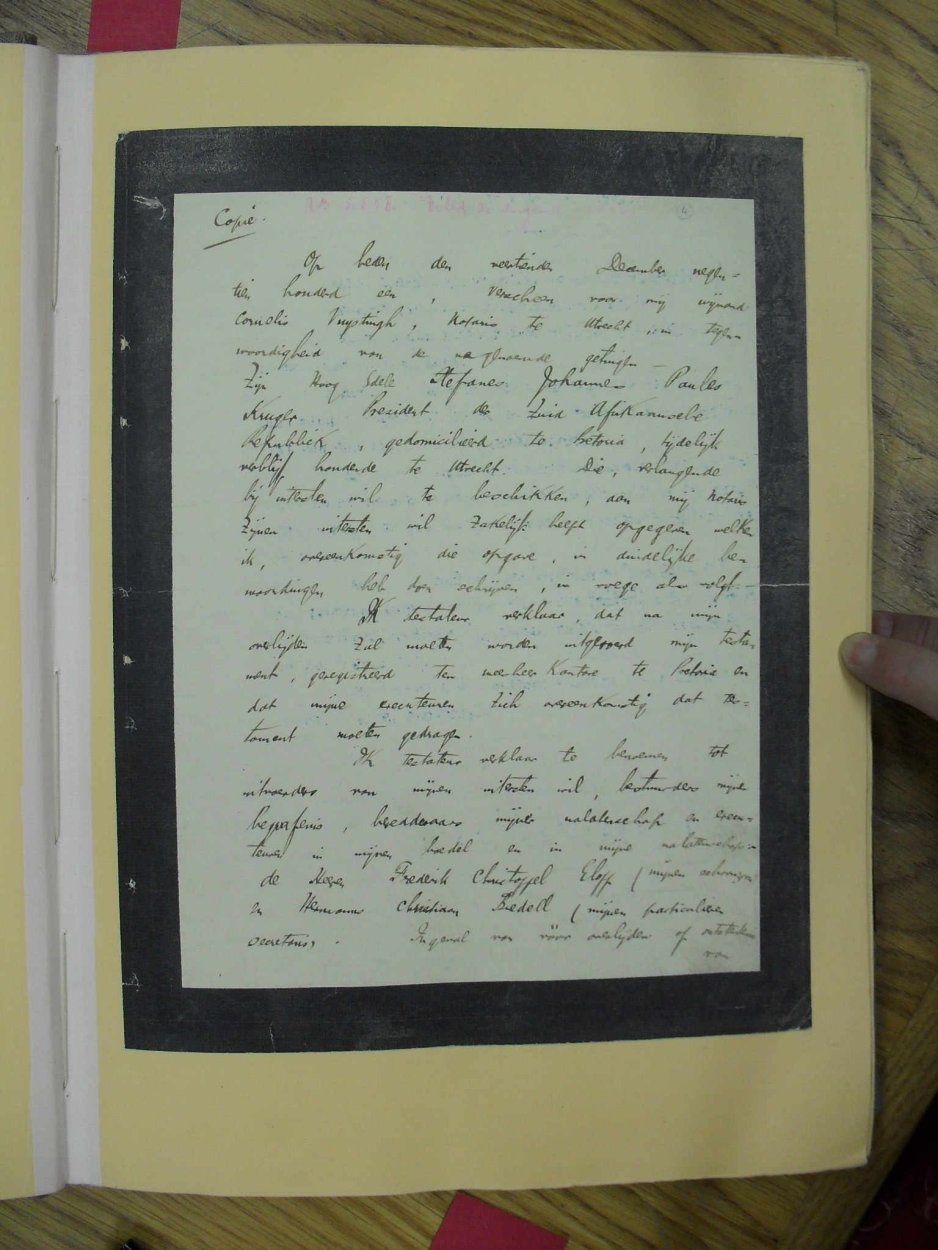 Copie.
Op heden den veertienden December negen-
tien honderd een, verscheen voor mij Wijnand
Cornelis Vuystingh, Notaris te Utrecht, in tegen-
woordigheid van de nagenoemde getuigen –
Zijn Hoog Edele Stefanes Johannes Paules
Kruger President der Zuid Afrikaansche
Republiek, gedomicilieerd te Pretoria, tijdelijk
verblijf houdende te Utrecht. Die, verlangende
bij uitersten wil te beschikken, aan mij Notaris
Zijnen uitersten wil Zakelijk heeft opgegeven welken
ik, overeenkomstig die opgave, in duidelijke be-
woordingen heb doen schrijven, in voege als volgt.
Ik testateur verklaar, dat na mijn
overlijden Zal moeten worden uitgevoerd mijn testa-
ment, geregistreerd ten Kantore te Pretoria en
dat mijne executeuren Zich overeenkomstig dat tes-
tament moeten gedragen.
Ik testateur verklaar te benoemen tot
uitvoerders van mijnen uitersten wil, bestuurders mijner
begrafenis, beredderaars mijner nalatenschap en execu-
teuren in mijnen boedel en in mijne nalatenschap:
de Heeren Frederik Christoffel Eloff (mijnen schoonzoon
en Hermanus Christiaan Bredell (mijnen particulieren
secretaris). Ingeval van vóór overlijden of ontstentenis
van